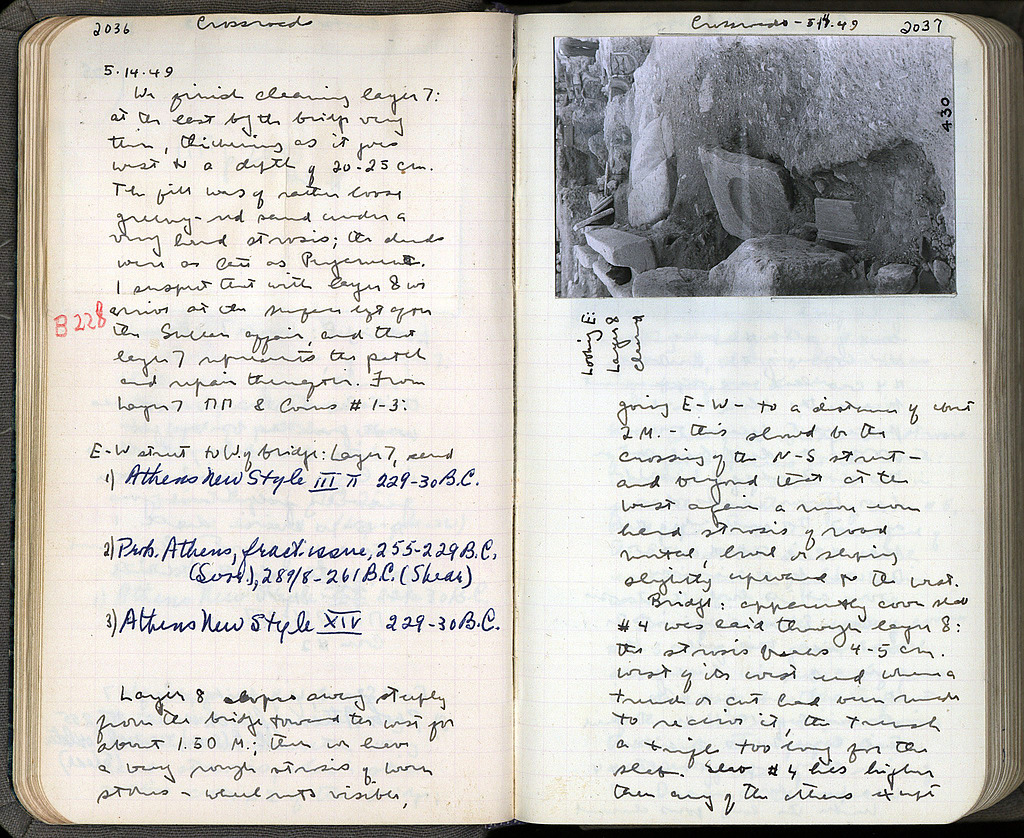 2036
Crossroads
5.14.49
We finish cleaning layer 7:
at the east by the bridge very
thin, thickening as it goes
west to a depth of 20-25 cm.
The fill was of rather loose
greeny-red sand under a
very hard strosis; the sherds
were as late as Pergamene.
I suspect that with layer 8 we
arrive at the surface
B 228
the Sullan affair, and that
layer 7 represents the patch
and repair thereafter. From
Layer 7 ΠΠ & Coins # 1-3:
E-W street to W of bridge: Layer 7, sand
1) Athens New Style III II 229-30 B.C.
2) Prob. Athens, fract. issue, 255-229 B.C.
(Svor.), 289/8-261 B.C. (Shear)
3) Athens New Style XIV 229-30 B.C.
Layer 8 slopes away steeply
from the bridge toward the west for
about 1.50 M.; then we have
a very rough strosis of worn
stones - wheel ruts visible,
Crossroads - 5.14.49
2037
430
Looking E:
Layer 8
cleared
going E-W - to a distance of about
2 M. - this should be the
crossing of the N-S street -
and beyond that at the
west again a more even
hard strosis of road
metal, level or sloping
slightly upward to the west.
Bridge: apparently cover slab
#4 was laid through layer 8:
the strosis 4-5 cm.
west of its west end where a
trench or cut had been made
to receive it, the trench
a trifle too long for the
slab. Slab #4 lies higher
than any of the others except